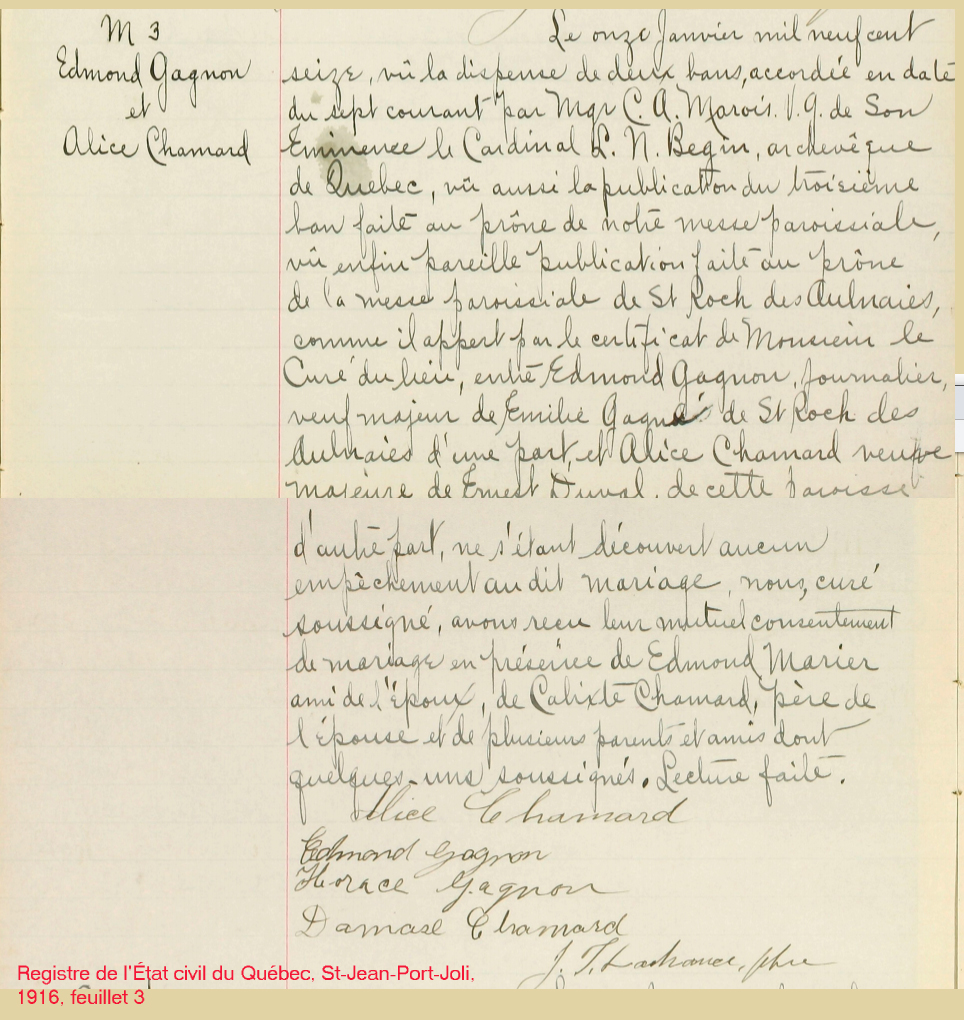 M 3
Edmond Gagnon
et
Alice Chamard
Le onze Janvier mil neuf cent
seize, vû la dispense de deux bans, accordée en date
du sept courant par Mgr C. A. Marois. V. G. de Son
Eminence le Cardinal L. N. Begin, archevêque
de Quebec, vû aussi la publication du troisième
ban faite au prône de notre messe paroissiale,
vû enfin pareille publication faite au prône
de la messe paroissiale de St Roch des Aulnaies,
comme il appert par le certificat de Monsieur le
Curé du lieu, entre Edmond Gagnon, journalier,
veuf majeur de Emilie Gagné de St Roch des
Aulnaies d'une part, et Alice Chamard veuve
majeure de Ernest Duval. de cette paroisse
d'autre part, ne s'étant découvert aucun
empêchement au dit mariage, nous, curé
soussigné, avons recu leur mutuel consentement
de mariage en présence de Edmond Marier
ami de l'époux, de Calixte Chamard, père de
l'épouse et de plusieurs parents et amis dont
quelques-uns soussignés. Lecture faite.
Alice Chamard
Edmond Gagnon
Horace Gagnon
Damase Chamard
J. T. Lachance, ptre
Registre de l'État civil du Québec, St-Jean-Port-Joli,
1916, feuillet 3